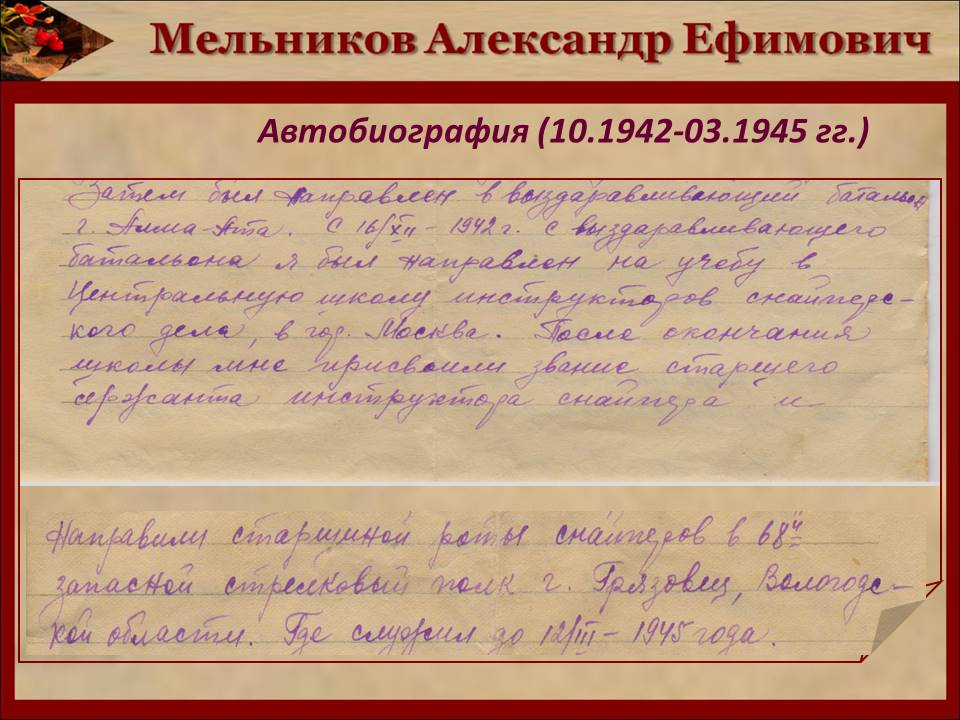 Мельников Александр Ефимович
Автобиография (10.1942-03.1945 гг.)
Затем был направлен в выздаравливающий батальон
г. Алма-Ата. С 16/XII - 1942 г. с выздаравливающего
батальона я был направлен на учебу в
Центральную школу инструкторов снайперс-
кого дела, в гор. Москва. После окончания
школы мне присвоили звание старшего
сержанта инструктора снайпера и
Направили старшиной роты снайперов в 68й
запасной стрелковый полк г. Грязовец, Вологодс-
кой области. Где служил до 12/III - 1945 года.